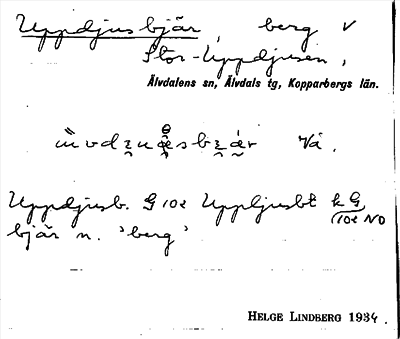 Uppdjusbjär, berg V
Stor-Uppdjusen,
Älvdalens sn, Älvdals tg, Kopparbergs län.
Vå.
Uppdjusb. G 10e Uppljusbt k G
10e NO
bjär n. 'berg'
HELGE LINDBERG 1934.